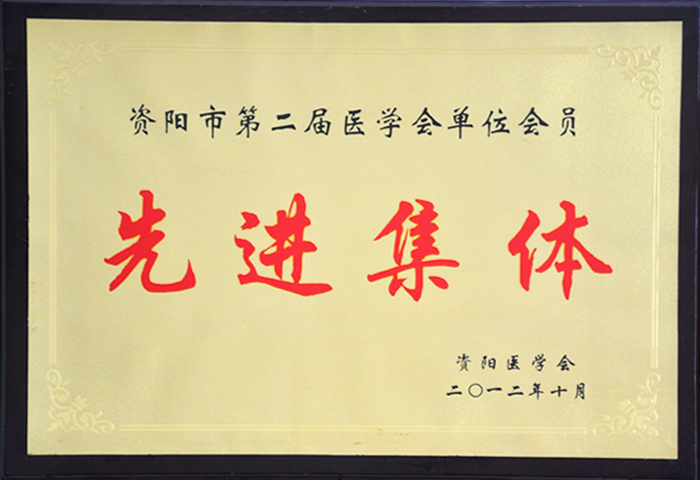 资阳市第二届医学会单位会员
先进集体
资阳医学会
二〇一二年十月